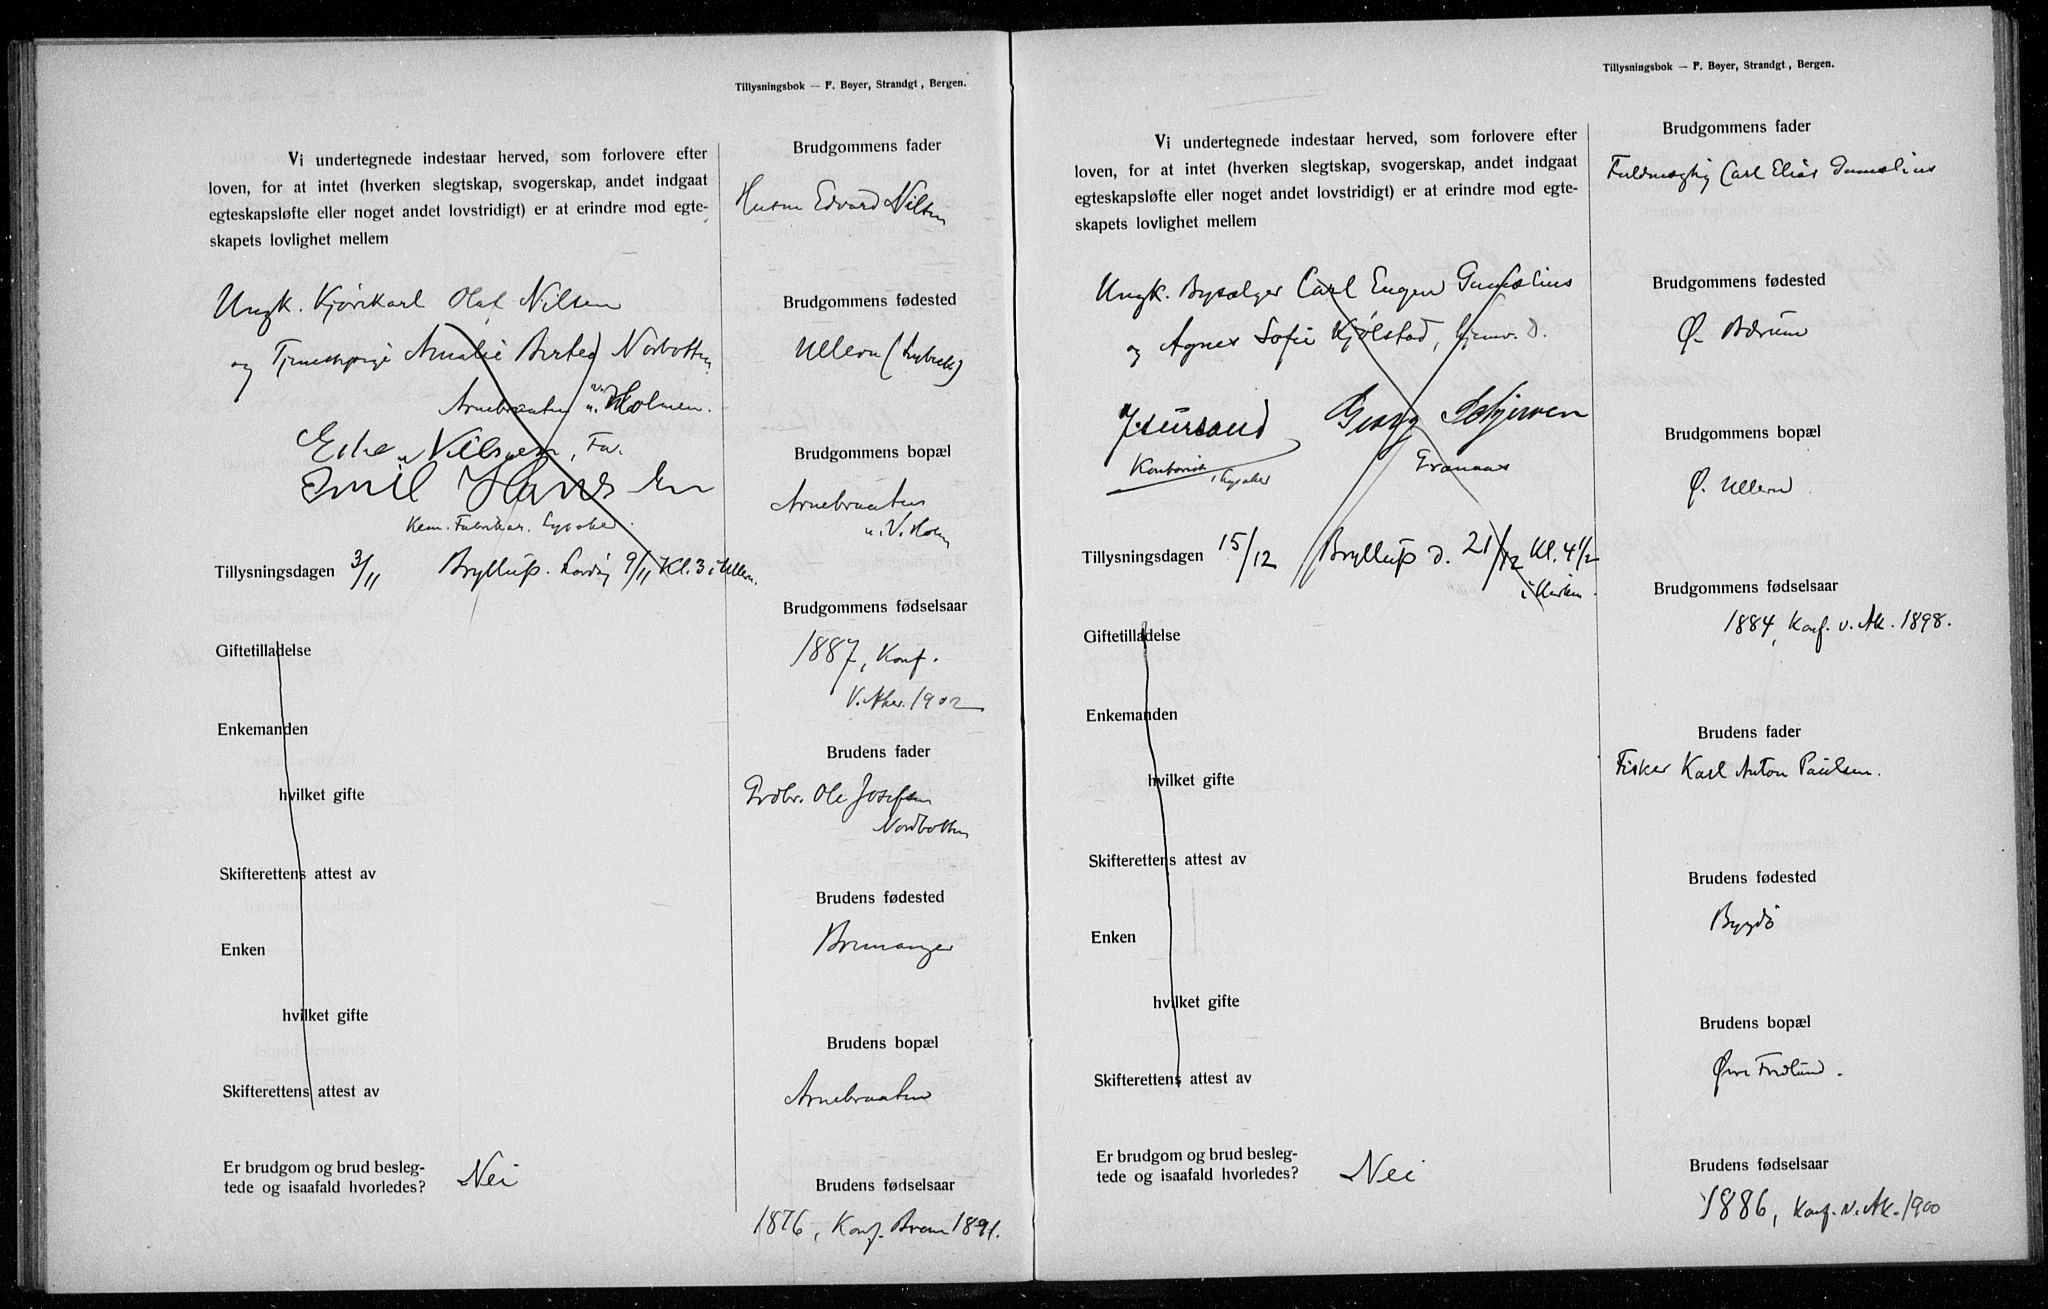 Tillysningsbok — F. Beyer, Strandgt, Bergen.
Vi undertegnede indestaar herved, som forlovere efter
loven, for at intet (hverken slegtskap, svogerskap, andet indgaat
egteskapsløfte eller noget andet lovstridigt) er at erindre mod egte-
skapets lovlighet mellem
Ungk. Kjørekarl Olaf Nilsen
og Tjenestepige Amalie Nordbotten
Arnebraaten u. V. Holmen.
Nilsen, Far.
Emil Hansen
Kem. Fabrikar. Lysaker.
Tillysningsdagen 3/11 Bryllup. Lørdag 9/11 Kl. 3 i Ullern.
Giftetilladelse
Enkemanden
hvilket gifte
Skifterettens attest av
Enken
hvilket gifte
Skifterettens attest av
Er brudgom og brud besleg-
tede og isaafald hvorledes? Nei
Brudgommens fader
Husm Edvard Nilsen
Brudgommens fødested
Ullern (Lysaker)
Brudgommens bopæl
Arnebraaten
u. V. Holm
Brudgommens fødselsaar
1887, Konf.
V. Aker. 1902
Brudens fader
Grdbr. Ole Josefsen
Nordbotten
Brudens fødested
Bremanger
Brudens bopæl
Arnebraaten
Brudens fødselsaar
1876, Konf. Brem 1891.
Tillysningsbok — F. Beyer, Strandgt, Bergen.
Vi undertegnede indestaar herved, som forlovere efter
loven, for at intet (hverken slegtskap, svogerskap, andet indgaat
egteskapsløfte eller noget andet lovstridigt) er at erindre mod egte-
skapets lovlighet mellem
Ungk. Bysælger Carl Eugen Gumælius
og Agnes Sofie Kjølstad, hjemv. D.
Georg Schjerven
Kontorist Lysaker Granaas
Tillysningsdagen 15/12 Bryllup d. 21/12 Kl. 4 1/2
i Kirken.
Giftetilladelse
Enkemanden
hvilket gifte
Skifterettens attest av
Enken
hvilket gifte
Skifterettens attest av
Er brudgom og brud besleg-
tede og isaafald hvorledes? Nei
Brudgommens fader
Fuldmægtig Carl Elias Gumælius
Brudgommens fødested
Ø. Bærum
Brudgommens bopæl
Ø. Ullern
Brudgommens fødselsaar
1884, Konf. v. Ak. 1898.
Brudens fader
Fisker Karl Anton Paulsen.
Brudens fødested
Bygdø
Brudens bopæl
Øvre Fredlund.
Brudens fødselsaar
1886, Konf. V. Ak. 1900